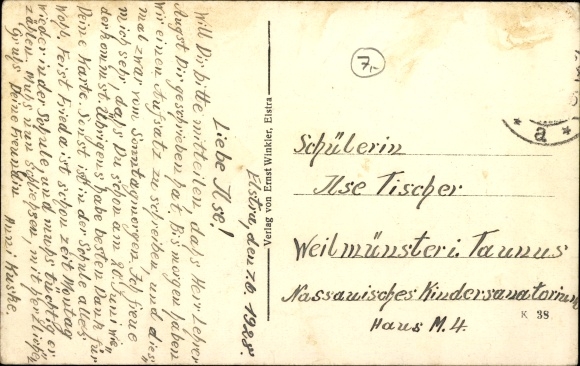 Elstra, den 7.6. 1928.
Liebe Ilse!
Will Dir bitte mitteilen, daß Herr Lehrer
Angst Dir geschrieben hat. Bis morgen haben
wir einen Aufsatz zu schreiben, und dies"
mal zwar vom Sonntagmorgen. Ich freue
mich sehr, daß Du schon am 20. Juni wie"
derkommst. Übrigens habe besten Dank für
Deine Karte. Sonst ist in der Schule alles
Wohl. Feist Frieda ist schon zeit Montag
wieder in der Schule und muß tüchtig er"
zählen. Muß nun schließen, mit herzlichen
Gruß Deine Freundin Anni Kuske.
Verlag von Ernst Winkler, Elstra
7,-
* a *
Schülerin
Ilse Tischer
Weilmünster i. Taunus
Nassauisches Kindersanatorium
Haus M. 4.
K 38